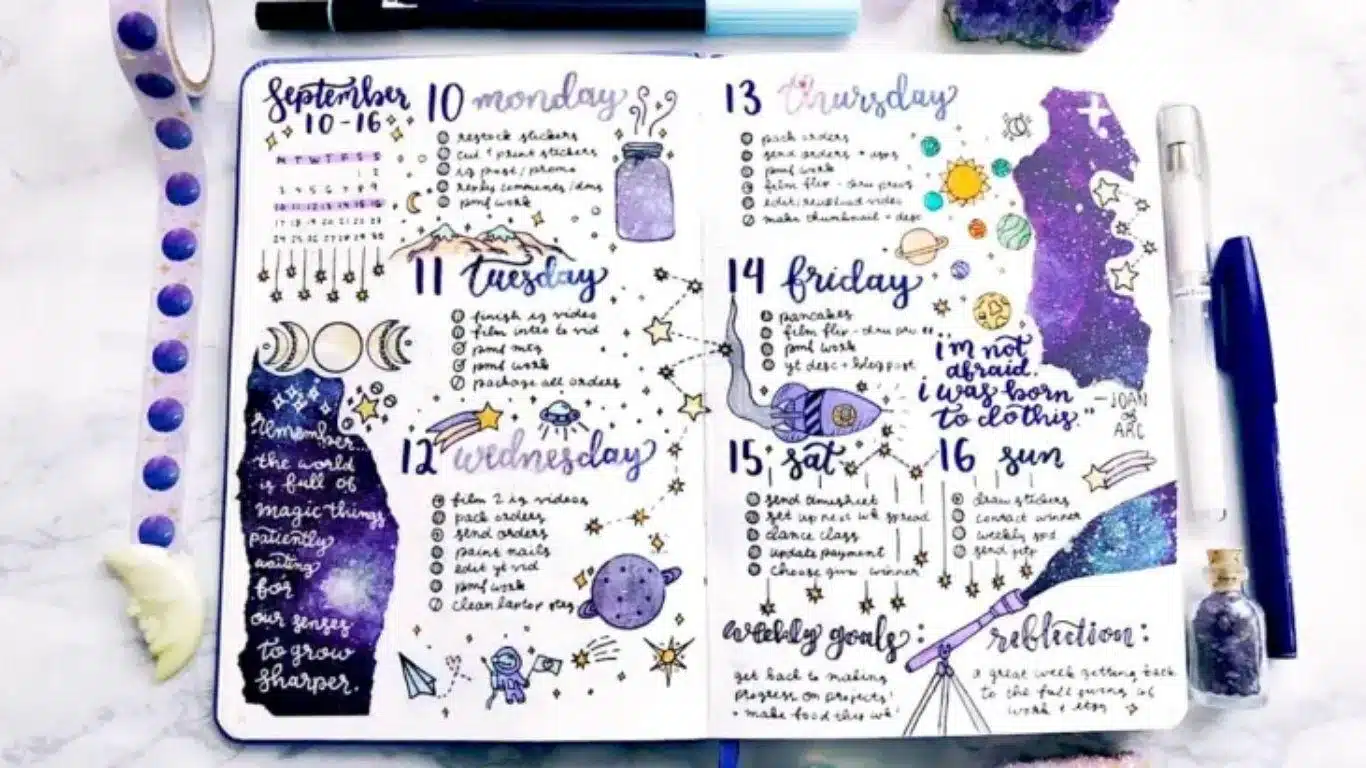 September
10-16
M T W T F S S
1 2
3 4 5 6 7 8 9
10 11 12 13 14 15 16
17 18 19 20 21 22 23
24 25 26 27 28 29 30
remember...
the world
is full of
magic things
patiently
waiting
for
our senses
to grow
sharper.
10 monday
restock stickers
cut + print stickers
ig post/promo
reply comments/dms
pmf work
11 tuesday
finish ig video
film intro to vid
pmf mtg
pmf work
package all orders
12 wednesday
film 2 ig videos
pack orders
send orders
paint nails
edit yt vid
pmf work
clean laptop
13 thursday
pack orders
send orders +
pmf work
film flip-thru
edit/ video
make thumbnail + desc
14 friday
pancakes
film flip-thru
pmf work
yt desc + blog post
i'm not
afraid.
i was born
to do this."
-JOAN
OF
ARC
15 sat
send timesheet
set up next wk spread
dance class
update payment
choose winner
16 sun
draw stickers
contact winner
weekly
send
weekly goals:
get back to making
progress on projects!
+ make food this wk!
reflection:
a great week getting back
to the full swing of
work + etsy